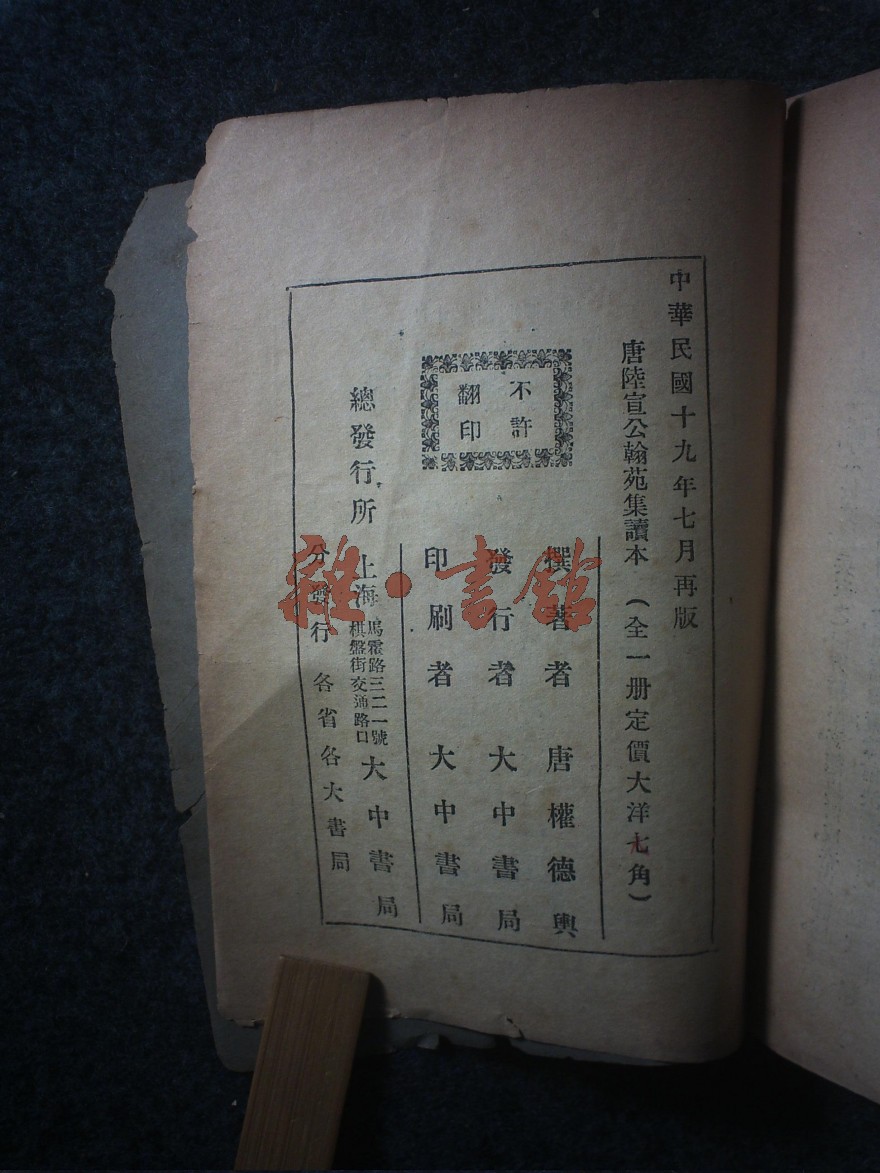 中華民國十九年七月再版
唐陸宣公翰苑集讀本（全一册定價大洋七角）
不許
翻印
撰著者 唐權德輿
發行者 大中書局
印刷者 大中書局
總發行所 上海 馬霍路三二一號
棋盤街交通路口
大中書局
分發行 各省各大書局
雜·書館